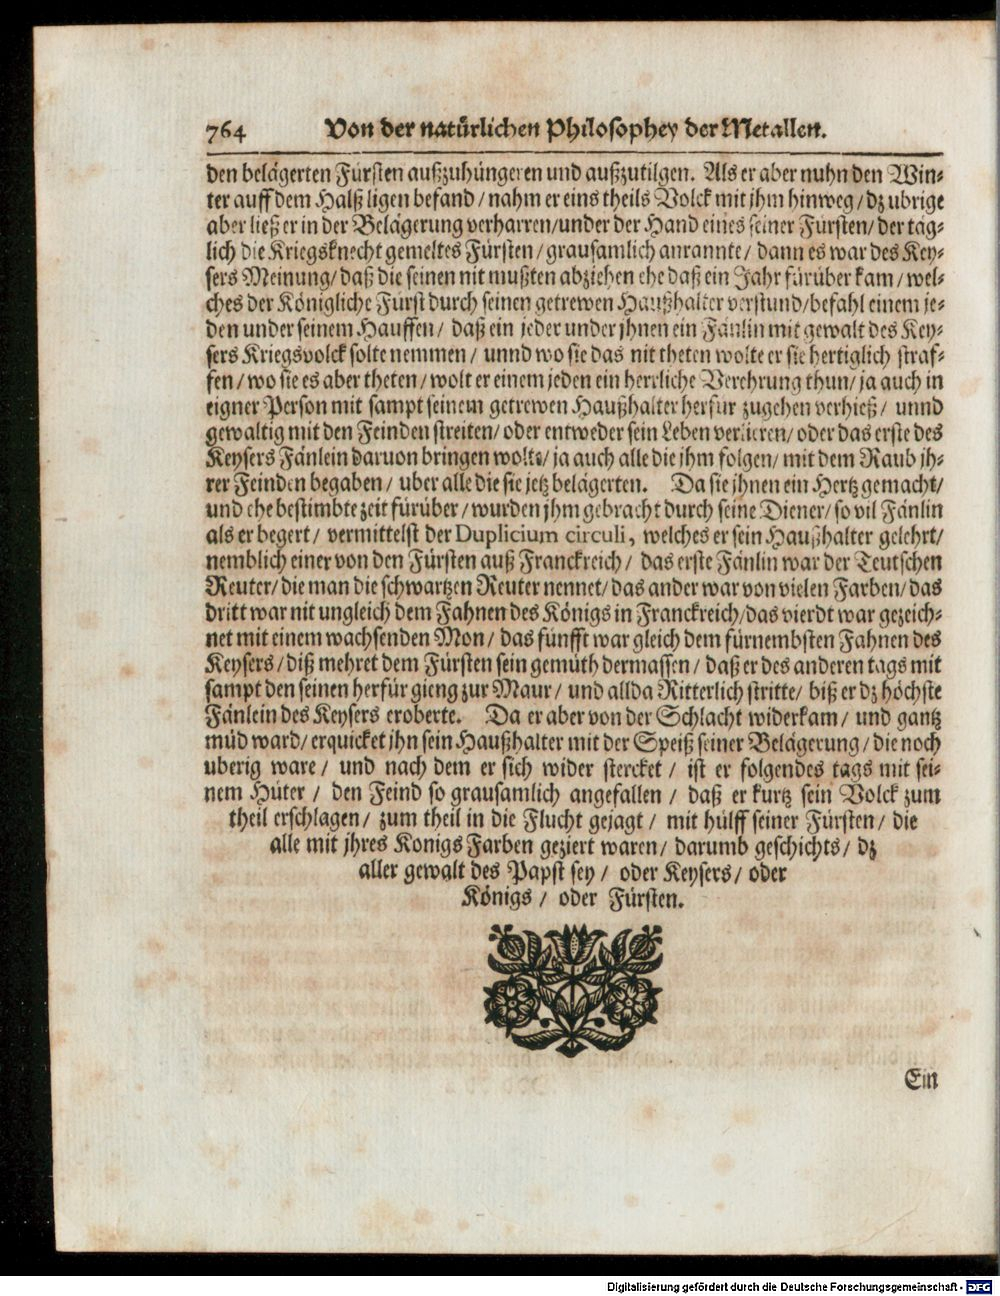 764 Von der natürlichen Philosophey der Metallen.
den belägerten Fürsten außzuhüngeren und außzutilgen. Als er aber nuhn den Win-
ter auff dem Halß ligen befand / nahm er eins theils Volck mit jhm hinweg / dz ubrige
aber ließ er in der Belägerung verharren/under der Hand eines seiner Fürsten/ der täg-
lich die Kriegsknecht gemeltes Fürsten / grausamlich anrannte / dann es war des Key-
sers Meinung/ daß die seinen nit mußten abziehen ehe daß ein Jahr fürüber kam / wel-
ches der Königliche Fürst durch seinen getrewen Haußhalter verstund/befahl einem je-
den under seinem Hauffen / daß ein jeder under jhnen ein Fänlin mit gewalt des Key-
sers Kriegsvolck solte nemmen / unnd wo sie das nit theten wolte er sie hertiglich straf-
fen / wo sie es aber theten / wolt er einem jeden ein herrliche Verehrung thun / ja auch in
eigner Person mit sampt seinem getrewen Haußhalter herfür zugehen verhieß / unnd
gewaltig mit den Feinden streiten / oder entweder sein Leben verlieren / oder das erste des
Keysers Fänlein daruon bringen wolte / ja auch alle die jhm folgen / mit dem Raub jh-
rer Feinden begaben / uber alle die sie jetz belägerten. Da sie jhnen ein Hertz gemacht/
und ehe bestimbte zeit fürüber / wurden jhm gebracht durch seine Diener / so vil Fänlin
als er begert / vermittelst der Duplicium circuli, welches er sein Haußhalter gelehrt/
nemblich einer von den Fürsten auß Franckreich / das erste Fänlin war der Teutschen
Reuter / die man die schwartzen Reuter nennet / das ander war von vielen Farben / das
dritt war nit ungleich dem Fahnen des Königs in Franckreich/das vierdt war gezeich-
net mit einem wachsenden Mon / das fünfft war gleich dem fürnembsten Fahnen des
Keysers / diß mehret dem Fürsten sein gemüth dermassen / daß er des anderen tags mit
sampt den seinen herfür gieng zur Maur / und allda Ritterlich stritte / biß er dz höchste
Fänlein des Keysers eroberte. Da er aber von der Schlacht widerkam / und gantz
müd ward / erquicket jhn sein Haußhalter mit der Speiß seiner Belägerung / die noch
uberig ware / und nach dem er sich wider stercket / ist er folgendes tags mit sei-
nem Hüter / den Feind so grausamlich angefallen / daß er kurtz sein Volck zum
theil erschlagen / zum theil in die Flucht gejagt / mit hülff seiner Fürsten / die
alle mit jhres Konigs Farben geziert waren / darumb geschichts / dz
aller gewalt des Papst sey / oder Keysers / oder
Königs / oder Fürsten.
Ein
Digitalisierung gefördert durch die Deutsche Forschungsgemeinschaft - DFG